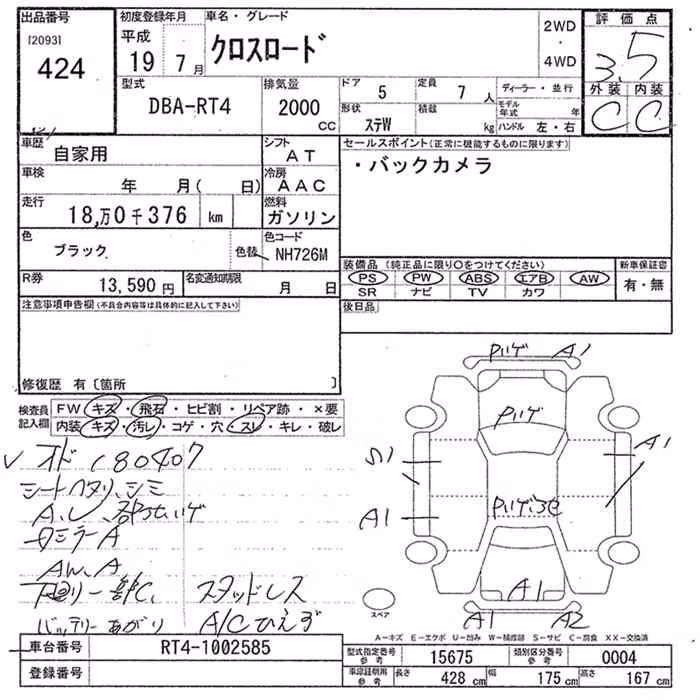 出品番号
[2093]
424
初度登録年月
平成
19 7月
車名・グレード
クロスロード
2WD
・
4WD
評価点
3.5
外装 内装
C C
型式
DBA-RT4
排気量
2000 CC
ドア 5
定員 7人
ディーラー・並行
形状 ステW
積載 kg
モデル年式 年
ハンドル 左・右
車歴
自家用
シフト
AT
車検
年 月( 日)
冷房
AAC
走行
18,万0千376 km
燃料
ガソリン
色
ブラック
色替
色コード
NH726M
R券
13,590円
名変通知期限
月 日
セールスポイント(正常に機能するものに限ります)
・バックカメラ
装備品(純正品に限り○をつけてください)
PS PW ABS エアB AW
SR ナビ TV カワ
新車保証書
有・無
後日品
注意事項申告欄(不具合内容等は具体的に記入して下さい)
修復歴 有〔箇所 〕
検査員記入欄
FW キズ・飛石・ヒビ割・リペア跡・×要
内装 キズ・汚レ・コゲ・穴・スレ・キレ・破レ
オド 180407
シートヘタリ、シミ
A.U.
ロミラーA
AW.A
下廻リ一部C、スタッドレス
バッテリーあがり A/Cひえず
Pハゲ A1
Pハゲ
S1
A1
A1
Pハゲ
A1
A1 A2
スペア
A－キズ E－エクボ U－凹み W－補修跡 S－サビ C－腐食 XX－交換済
車台番号
RT4-1002585
登録番号
型式指定番号 参考
15675
類別区分番号 参考
0004
車庫証明用 参考
長さ 428 cm
幅 175 cm
高さ 167 cm